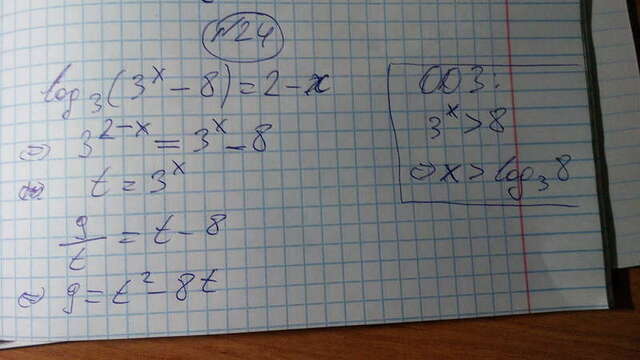 №24
log₃(3ˣ - 8) = 2 - x
⇔ 3²⁻ˣ = 3ˣ - 8
⇔ t = 3ˣ
9/t = t - 8
⇔ 9 = t² - 8t
ОДЗ:
3ˣ > 8
⇔ x > log₃8